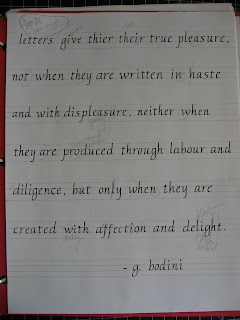 letters give thier their true pleasure,
not when they are written in haste
and with displeasure, neither when
they are produced through labour and
diligence, but only when they are
created with affection and delight.
- g. bodini